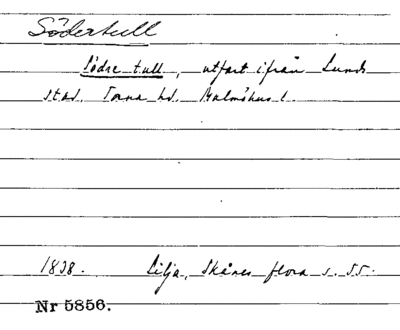 Södertull
Södre tull, utfart ifrån Lunds
stad. Torna hd. Malmöhus l.
1838. Lilja, Skånes flora s. 55.
Nr 5856.